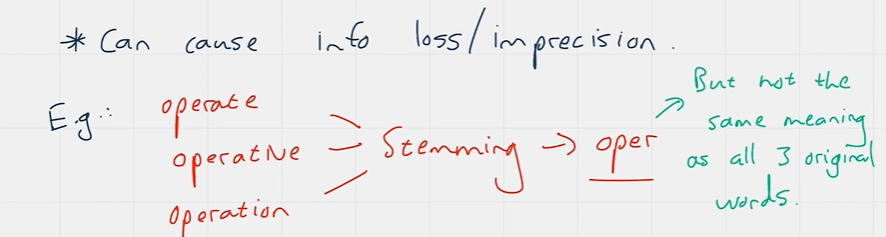 * Can cause info loss/imprecision.
E.g.: operate
operative
operation
Stemming → oper
But not the
same meaning
as all 3 original
words.